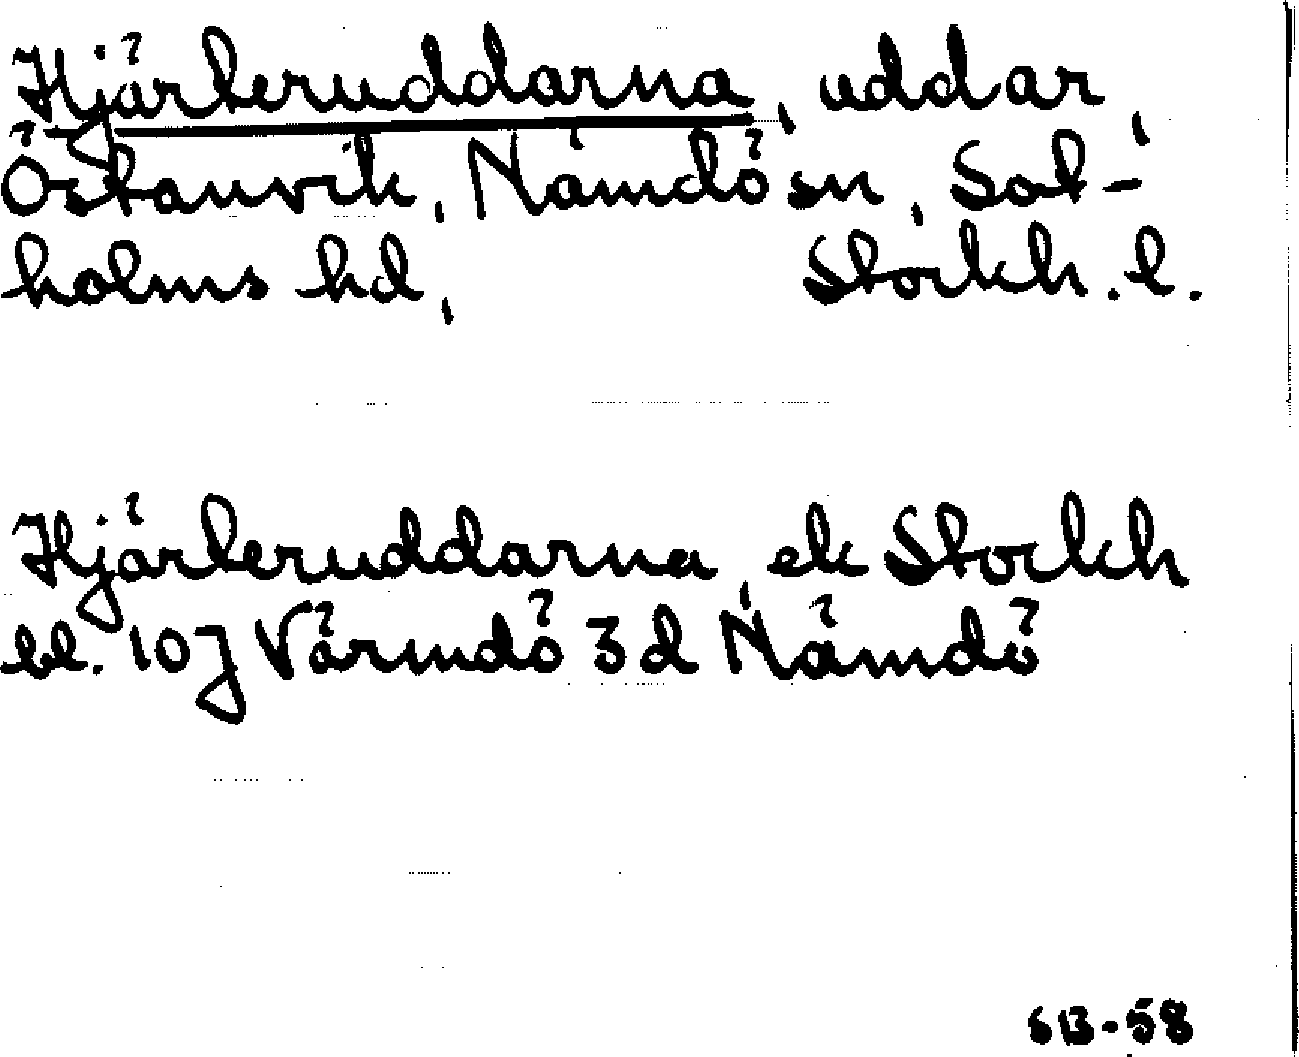 Hjärteruddarna, uddar,
Östanvik, Nämdö sn, Sot-
holms hd, Stockh. l.
Hjärteruddarna, ek Stockh
bl. 10J Värmdö 3d Nämdö
SB-58